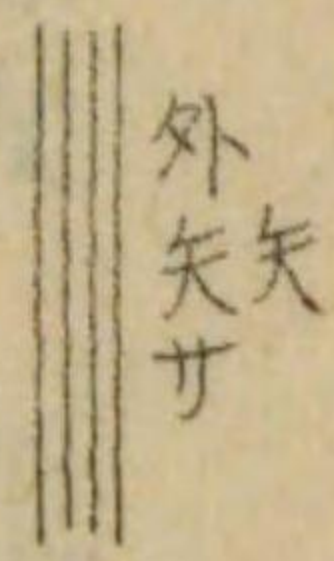 矢
外矢サ